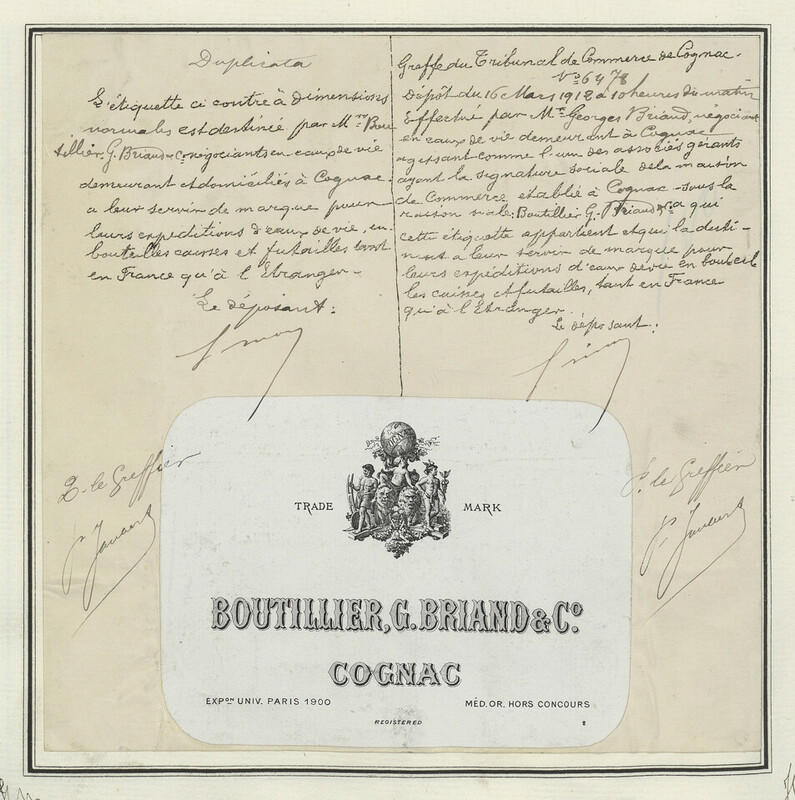 Duplicata
L'étiquette ci contre à dimensions
normales est destinée par Mrs Bou
tillier, G. Briand & Co négociants en eaux de vie
demeurant et domiciliés à Cognac
a leur servir de marque pour
leurs expéditions d'eaux de vie, en
bouteilles caisses et futailles tant
en France qu'à l'Etranger -
Le déposant:
Greffe du Tribunal de Commerce de Cognac.
No 6478
Dépôt du 16 Mars 1918 à 10 heures du matin
Effectué par Mr Georges Briand, négociant
en eaux de vie demeurant à Cognac
agissant comme l'un des associés gérants
ayant la signature sociale de la maison
de Commerce établie à Cognac sous la
raison Boutillier G. Briand & Cie à qui
cette étiquette appartient et qui la desti-
nent a leur servir de marque pour
leurs expéditions d'eaux de vie en bouteil
les caisses et futailles, tant en France
qu'à l'Etranger.
Le déposant:
le Greffier
le Greffier
TRADE MARK
BOUTILLIER, G. BRIAND & Co.
COGNAC
EXPon UNIV. PARIS 1900 MÉD. OR. HORS CONCOURS
REGISTERED